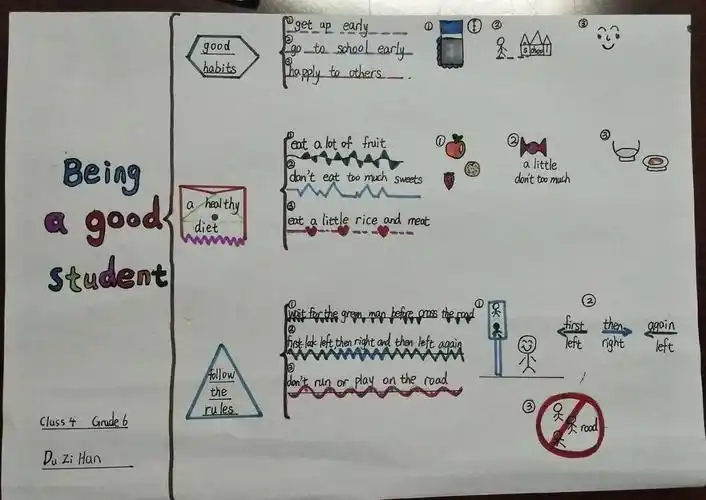 Being
a good
student
Class 4 Grade 6
Du Zi Han
good
habits
① get up early
② go to school early
③ happy to others.
① ② school ③
a healthy
diet
① eat a lot of fruit
② don't eat too much sweets
③ eat a little rice and meat
① ② ③
a little
don't too much
follow
the
rules
① wait for the green man before cross the road
② first lok left then right and then left again
③ don't run or play on the road
① ②
first then again
left right left
③ road